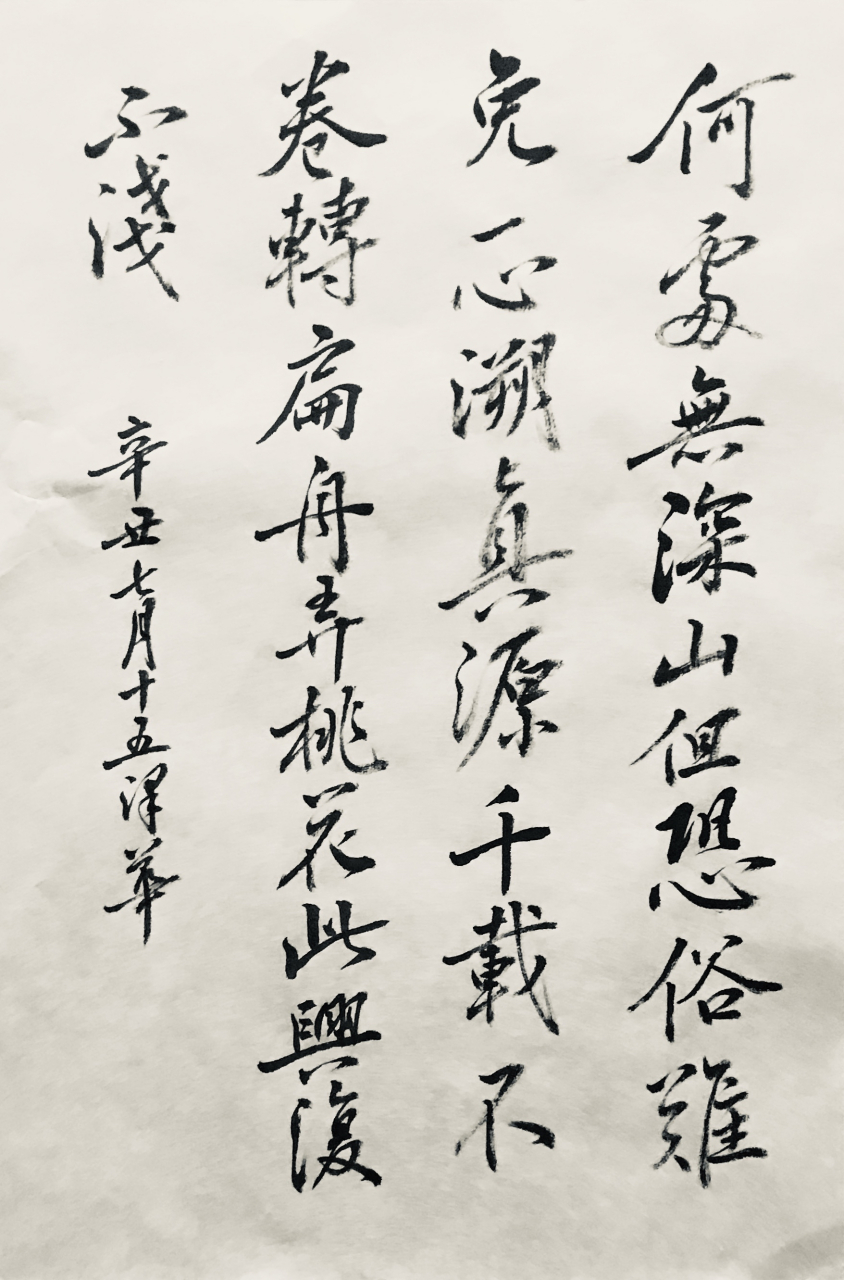 何處無深山但恐俗難
免一心溯真源千載不
卷轉扁舟弄桃花此興復
不淺
辛丑七月十五澤華